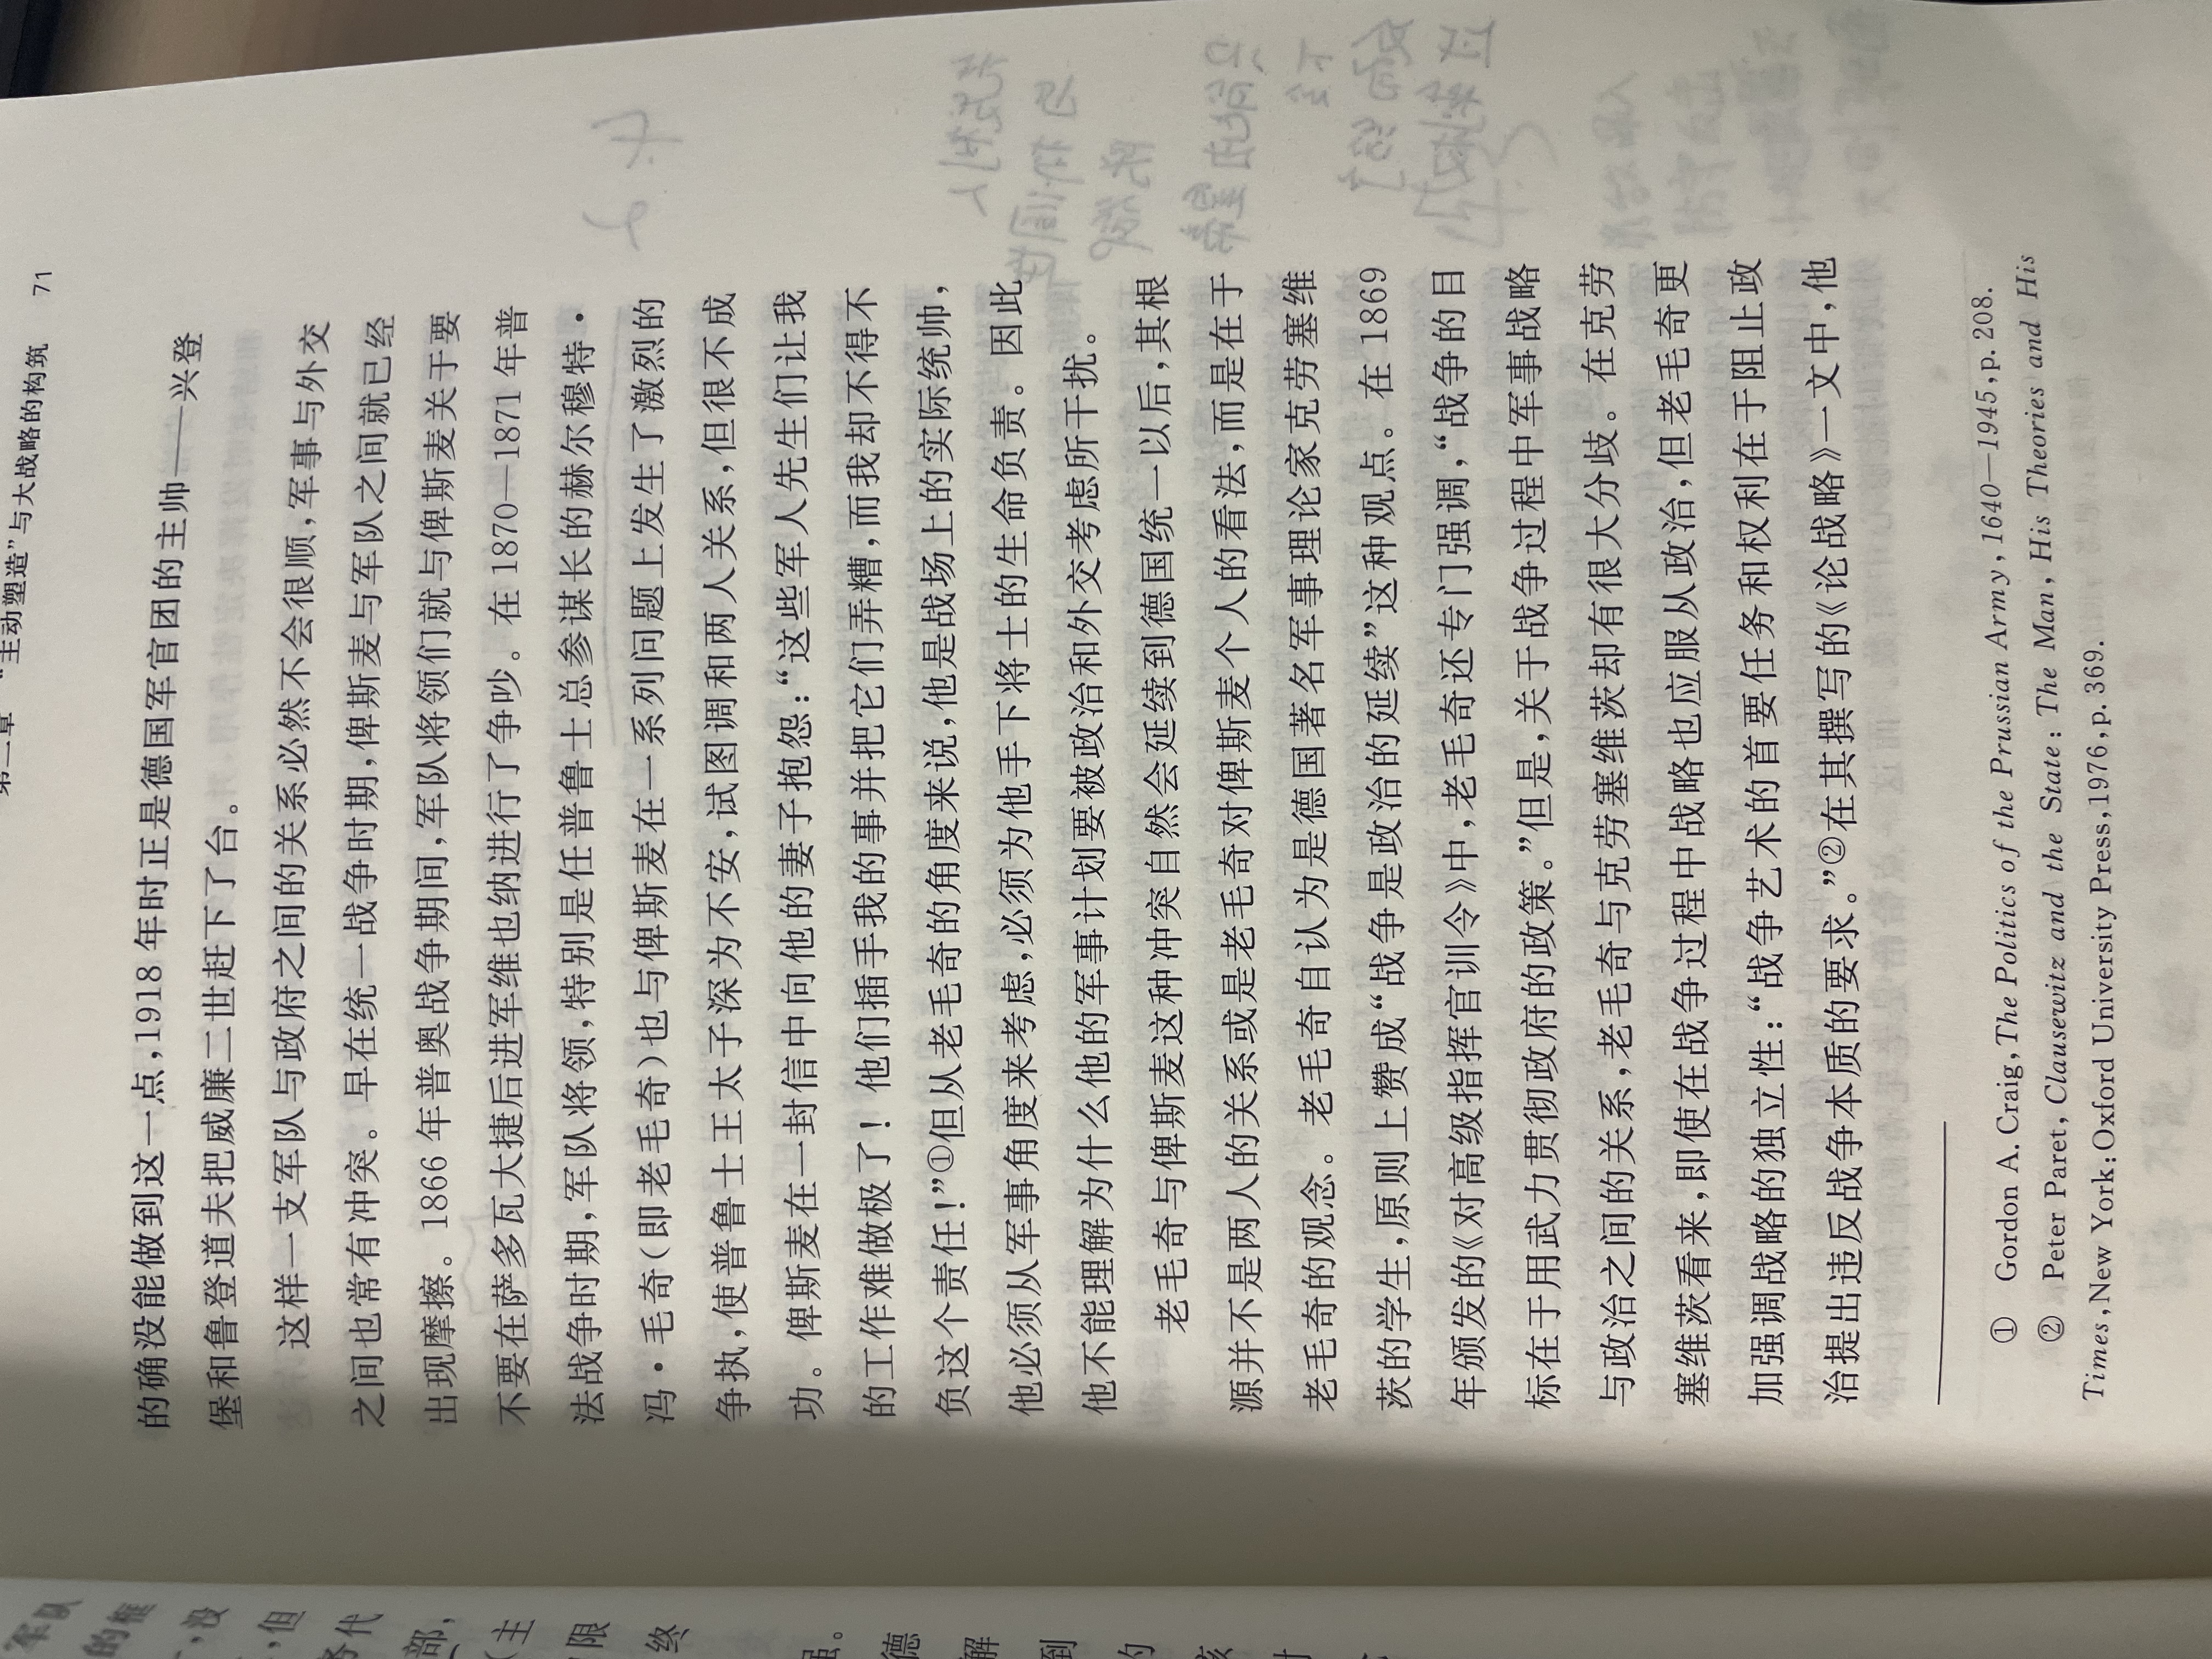 “主动塑造”与大战略的构筑 71
的确没能做到这一点,1918 年时正是德国军官团的主帅——兴登
堡和鲁登道夫把威廉二世赶下了台。
这样一支军队与政府之间的关系必然不会很顺,军事与外交
之间也常有冲突。早在统一战争时期,俾斯麦与军队之间就已经
出现摩擦。1866 年普奥战争期间,军队将领们就与俾斯麦关于要
不要在萨多瓦大捷后进军维也纳进行了争吵。在 1870—1871 年普
法战争时期,军队将领,特别是任普鲁士总参谋长的赫尔穆特·
冯·毛奇(即老毛奇)也与俾斯麦在一系列问题上发生了激烈的
争执,使普鲁士王太子深为不安,试图调和两人关系,但很不成
功。俾斯麦在一封信中向他的妻子抱怨:“这些军人先生们让我
的工作难做极了！他们插手我的事并把它们弄糟,而我却不得不
负这个责任!”①但从老毛奇的角度来说,他是战场上的实际统帅,
他必须从军事角度来考虑,必须为他手下将士的生命负责。因此
他不能理解为什么他的军事计划要被政治和外交考虑所干扰。
老毛奇与俾斯麦这种冲突自然会延续到德国统一以后,其根
源并不是两人的关系或是老毛奇对俾斯麦个人的看法,而是在于
老毛奇的观念。老毛奇自认为是德国著名军事理论家克劳塞维
茨的学生,原则上赞成“战争是政治的延续”这种观点。在 1869
年颁发的《对高级指挥官训令》中,老毛奇还专门强调,“战争的目
标在于用武力贯彻政府的政策。”但是,关于战争过程中军事战略
与政治之间的关系,老毛奇与克劳塞维茨却有很大分歧。在克劳
塞维茨看来,即使在战争过程中战略也应服从政治,但老毛奇更
加强调战略的独立性:“战争艺术的首要任务和权利在于阻止政
治提出违反战争本质的要求。”②在其撰写的《论战略》一文中,他
① Gordon A. Craig, The Politics of the Prussian Army, 1640—1945, p. 208.
② Peter Paret, Clausewitz and the State: The Man, His Theories and His
Times, New York: Oxford University Press, 1976, p. 369.